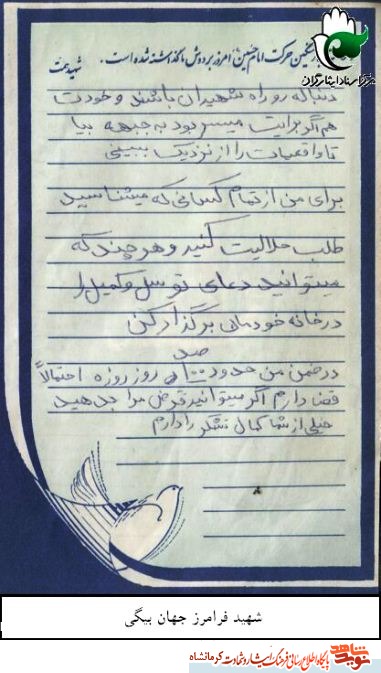 سنگین حرکت امام حسین امروز بر دوش ما گذاشته شده است. شهید همت
دنباله رو راه شهیدان باشند و خودت
هم اگر برایت میسر بود به جبهه بیا
تا واقعیات را از نزدیک ببینی
برای من از تمام کسانی که میشناسید
طلب حلالیت کنید و هر چند که
میتوانید دعای توسل و کمیل را
در خانه خودمان برگزار کن
در ضمن من حدود صد روز روزه احتمالاً
قضا دارم اگر میتوانید قرض مرا بدهید
خیلی از شما کمال تشکر را دارم
شهید فرامرز جهان بیگی
نوید شاهد پایگاه اطلاع رسانی فرهنگ ایثار و شهادت کرمانشاه